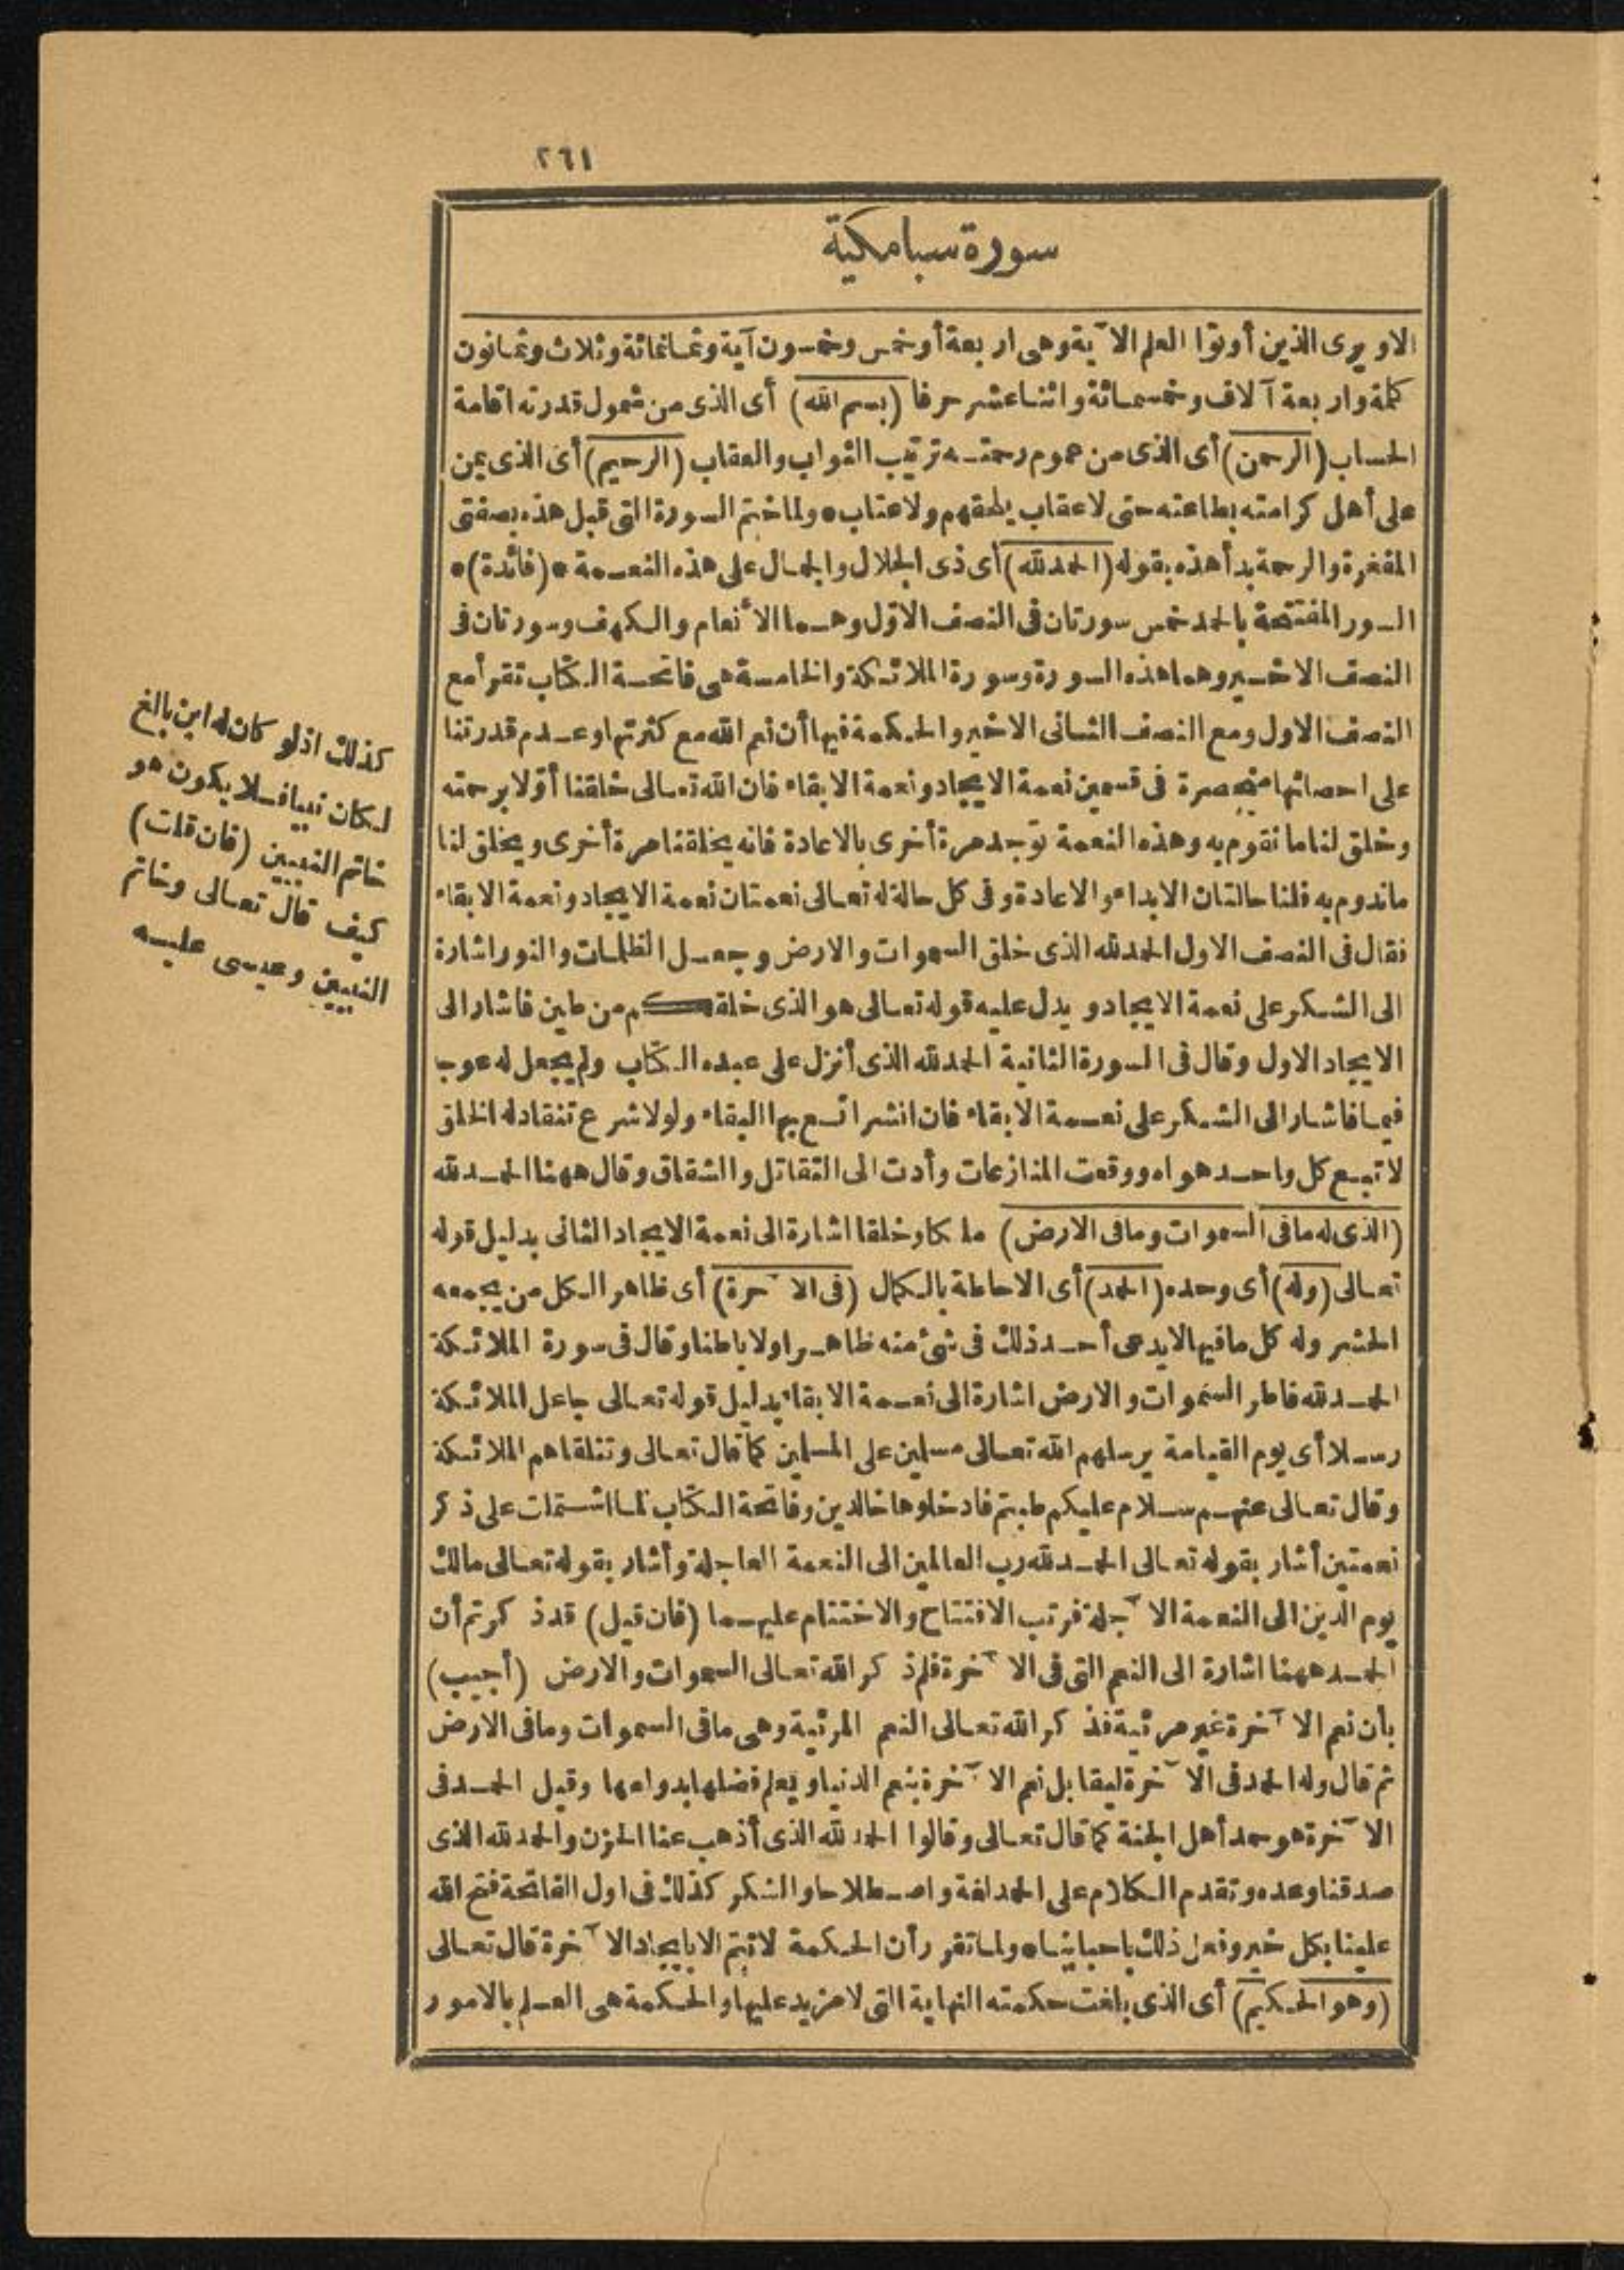 ٢٦١
سورة سبا مكية
الاويرى الذين أوتوا العلم الآية وهى اربعة أوخمس وخمسون آية وثمانمائة وثلاث وثمانون
كلة واربعة آلاف وخمسمائة واثناعشر حرفا (بسم الله) أى الذى من شمول قدرته اقامة
الحساب (الرحمن) أى الذى من عموم رحمته ترتيب الثواب والعقاب (الرحيم) أى الذى يمن
على أهل كرامته بطاعته حتى لاعقاب يلحقهم ولا عتاب * ولما ختم السورة التى قبل هذه بصفتى
المغفرة والرحمة بدأ هذه بقوله (الحمد لله) أى ذى الجلال والجمال على هذه النعمة * (فائدة) *
السور المفتتحة بالحمد خمس سورتان فى النصف الاوّل وهما الأنعام والكهف وسورتان فى
النصف الاخير وهما هذه السورة وسورة الملائكة والخامسة هى فاتحة الكتاب تقرأ مع
النصف الاول ومع النصف الثانى الاخير والحكمة فيها أن نعم الله مع كثرتها وعدم قدرتنا
على احصائها منحصرة فى قسمين نعمة الايجاد ونعمة الابقاء فان الله تعالى خلقنا أوّلا برحمته
وخلق لنا ما نقوم به وهذه النعمة توجد مرة أخرى بالاعادة فانه يخلقنا مرة أخرى ويخلق لنا
ماندوم به فلنا حالتان الابداء والاعادة وفى كل حالة له تعالى نعمتان نعمة الايجاد ونعمة الابقاء
فقال فى النصف الاول الحمد لله الذى خلق السموات والارض وجعل الظلمات والنور اشارة
الى الشكر على نعمة الايجاد ويدل عليه قوله تعالى هو الذى خلقكم من طين فاشار الى
الايجاد الاول وقال فى السورة الثانية الحمد لله الذى أنزل على عبده الكتاب ولم يجعل له عوجا
قيما فاشار الى الشكر على نعمة الابقاء فان الشرائع بها البقاء ولولا شرع تنقاد له الخلق
لاتبع كل واحد هواه ووقعت المنازعات وأدت الى التقاتل والشقاق وقال ههنا الحمد لله
(الذى له مافى السموات ومافى الارض) ملكا وخلقا اشارة الى نعمة الايجاد الثانى بدليل قوله
تعالى (وله) أى وحده (الحمد) أى الاحاطة بالكمال (فى الآخرة) أى ظاهر الكل من يجمعه
الحشر وله كل مافيها لايدعى أحد ذلك فى شئ منه ظاهرا ولا باطنا وقال فى سورة الملائكة
الحمد لله فاطر السموات والارض اشارة الى نعمة الابقاء بدليل قوله تعالى جاعل الملائكة
رسلا أى يوم القيامة يرسلهم الله تعالى مسلمين على المسلمين كما قال تعالى وتتلقاهم الملائكة
وقال تعالى عنهم سلام عليكم طبتم فادخلوها خالدين وفاتحة الكتاب لما اشتملت على ذكر
نعمتين أشار بقوله تعالى الحمد لله رب العالمين الى النعمة العاجلة وأشار بقوله تعالى مالك
يوم الدين الى النعمة الآجلة فرتب الافتتاح والاختتام عليهما (فان قيل) قد ذكرتم أن
الحمد ههنا اشارة الى النعم التى فى الآخرة فلم ذكر الله تعالى السموات والارض (أجيب)
بأن نعم الآخرة غير مرئية فذكر الله تعالى النعم المرئية وهى مافى السموات ومافى الارض
ثم قال وله الحمد فى الآخرة ليقابل نعم الآخرة بنعم الدنيا ويعلم فضلها بدوامها وقيل الحمد فى
الآخرة هو حمد أهل الجنة كما قال تعالى وقالوا الحمد لله الذى أذهب عنا الحزن والحمد لله الذى
صدقنا وعده وتقدم الكلام على الحمد لغة واصطلاحا والشكر كذلك فى اول الفاتحة فتح الله
علينا بكل خير وفعل ذلك باحبابنا * ولما تقرر أن الحكمة لاتتم الا بايجاد الآخرة قال تعالى
(وهو الحكيم) أى الذى بلغت حكمته النهاية التى لامزيد عليها والحكمة هى العلم بالامور
كذلك اذلو كان له ابن بالغ
لكان نبيا فلا يكون هو
خاتم النبيين (فان قلت)
كيف قال تعالى وخاتم
النبيين وعيسى عليه